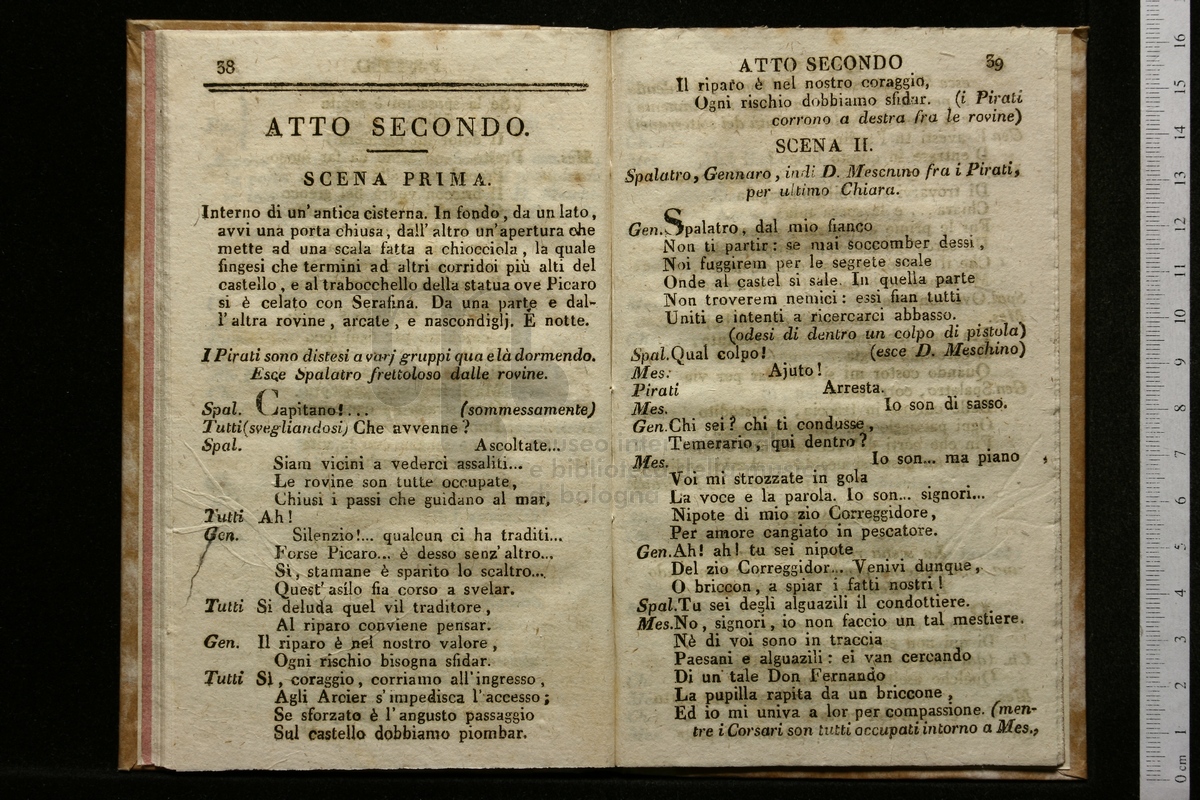 38
ATTO SECONDO.
SCENA PRIMA.
Interno di un' antica cisterna. In fondo, da un lato,
avvi una porta chiusa, dall' altro un' apertura che
mette ad una scala fatta a chiocciola, la quale
fingesi che termini ad altri corridoi più alti del
castello, e al trabocchello della statua ove Picaro
si è celato con Serafina. Da una parte e dal-
l' altra rovine, arcate, e nascondiglj. È notte.
I Pirati sono distesi a varj gruppi qua e là dormendo.
Esce Spalatro frettoloso dalle rovine.
Spal. Capitano!... (sommessamente)
Tutti (svegliandosi) Che avvenne?
Spal. Ascoltate...
Siam vicini a vederci assaliti...
Le rovine son tutte occupate,
Chiusi i passi che guidano al mar,
Tutti Ah!
Gen. Silenzio!... qualcun ci ha traditi...
Forse Picaro... è desso senz' altro...
Sì, stamane è sparito lo scaltro...
Quest' asilo fia corso a svelar.
Tutti Si deluda quel vil traditore,
Al riparo conviene pensar.
Gen. Il riparo è nel nostro valore,
Ogni rischio bisogna sfidar.
Tutti Sì, coraggio, corriamo all' ingresso,
Agli Arcier s' impedisca l' accesso;
Se sforzato è l' angusto passaggio
Sul castello dobbiamo piombar.
ATTO SECONDO 39
Il riparo è nel nostro coraggio,
Ogni rischio dobbiamo sfidar. (i Pirati
corrono a destra fra le rovine)
SCENA II.
Spalatro, Gennaro, indi D. Meschino fra i Pirati,
per ultimo Chiara.
Gen. Spalatro, dal mio fianco
Non ti partir: se mai soccomber dessi,
Noi fuggirem per le segrete scale
Onde al castel si sale. In quella parte
Non troverem nemici: essi fian tutti
Uniti e intenti a ricercarci abbasso.
(odesi di dentro un colpo di pistola)
Spal. Qual colpo! (esce D. Meschino)
Mes. Ajuto!
Pirati Arresta.
Mes. Io son di sasso.
Gen. Chi sei? chi ti condusse,
Temerario, qui dentro?
Mes. Io son... ma piano,
Voi mi strozzate in gola
La voce e la parola. Io son... signori...
Nipote di mio zio Correggidore,
Per amore cangiato in pescatore.
Gen. Ah! ah! tu sei nipote
Del zio Correggidor... Venivi dunque,
O briccon, a spiar i fatti nostri!
Spal. Tu sei degli alguazili il condottiere.
Mes. No, signori, io non faccio un tal mestiere.
Nè di voi sono in traccia
Paesani e alguazili: ei van cercando
Di un tale Don Fernando
La pupilla rapita da un briccone,
Ed io mi univa a lor per compassione. (men-
tre i Corsari son tutti occupati intorno a Mes.,
museo inter
e biblioteca della musica
di bologna
0 cm 1 2 3 4 5 6 7 8 9 10 11 12 13 14 15 16